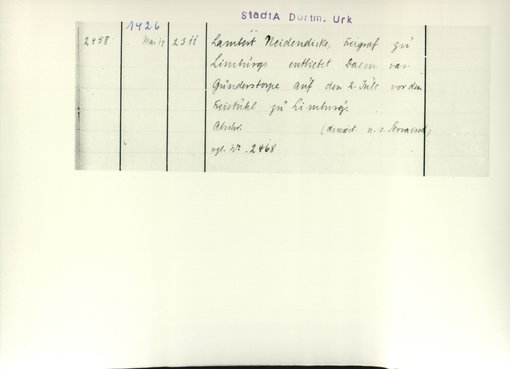 StadtA Dortm. Urk
1426
2458 Mai 14 2311 Lambert Neidendicke, Freigraf zu
Limburg, entbietet Daem van
Gunderstorpe auf den 2. Juli vor den
Freistuhl zu Limburg.
Abschr. (donerst. n. s. Servaiusd)
vgl. Nr. 2468